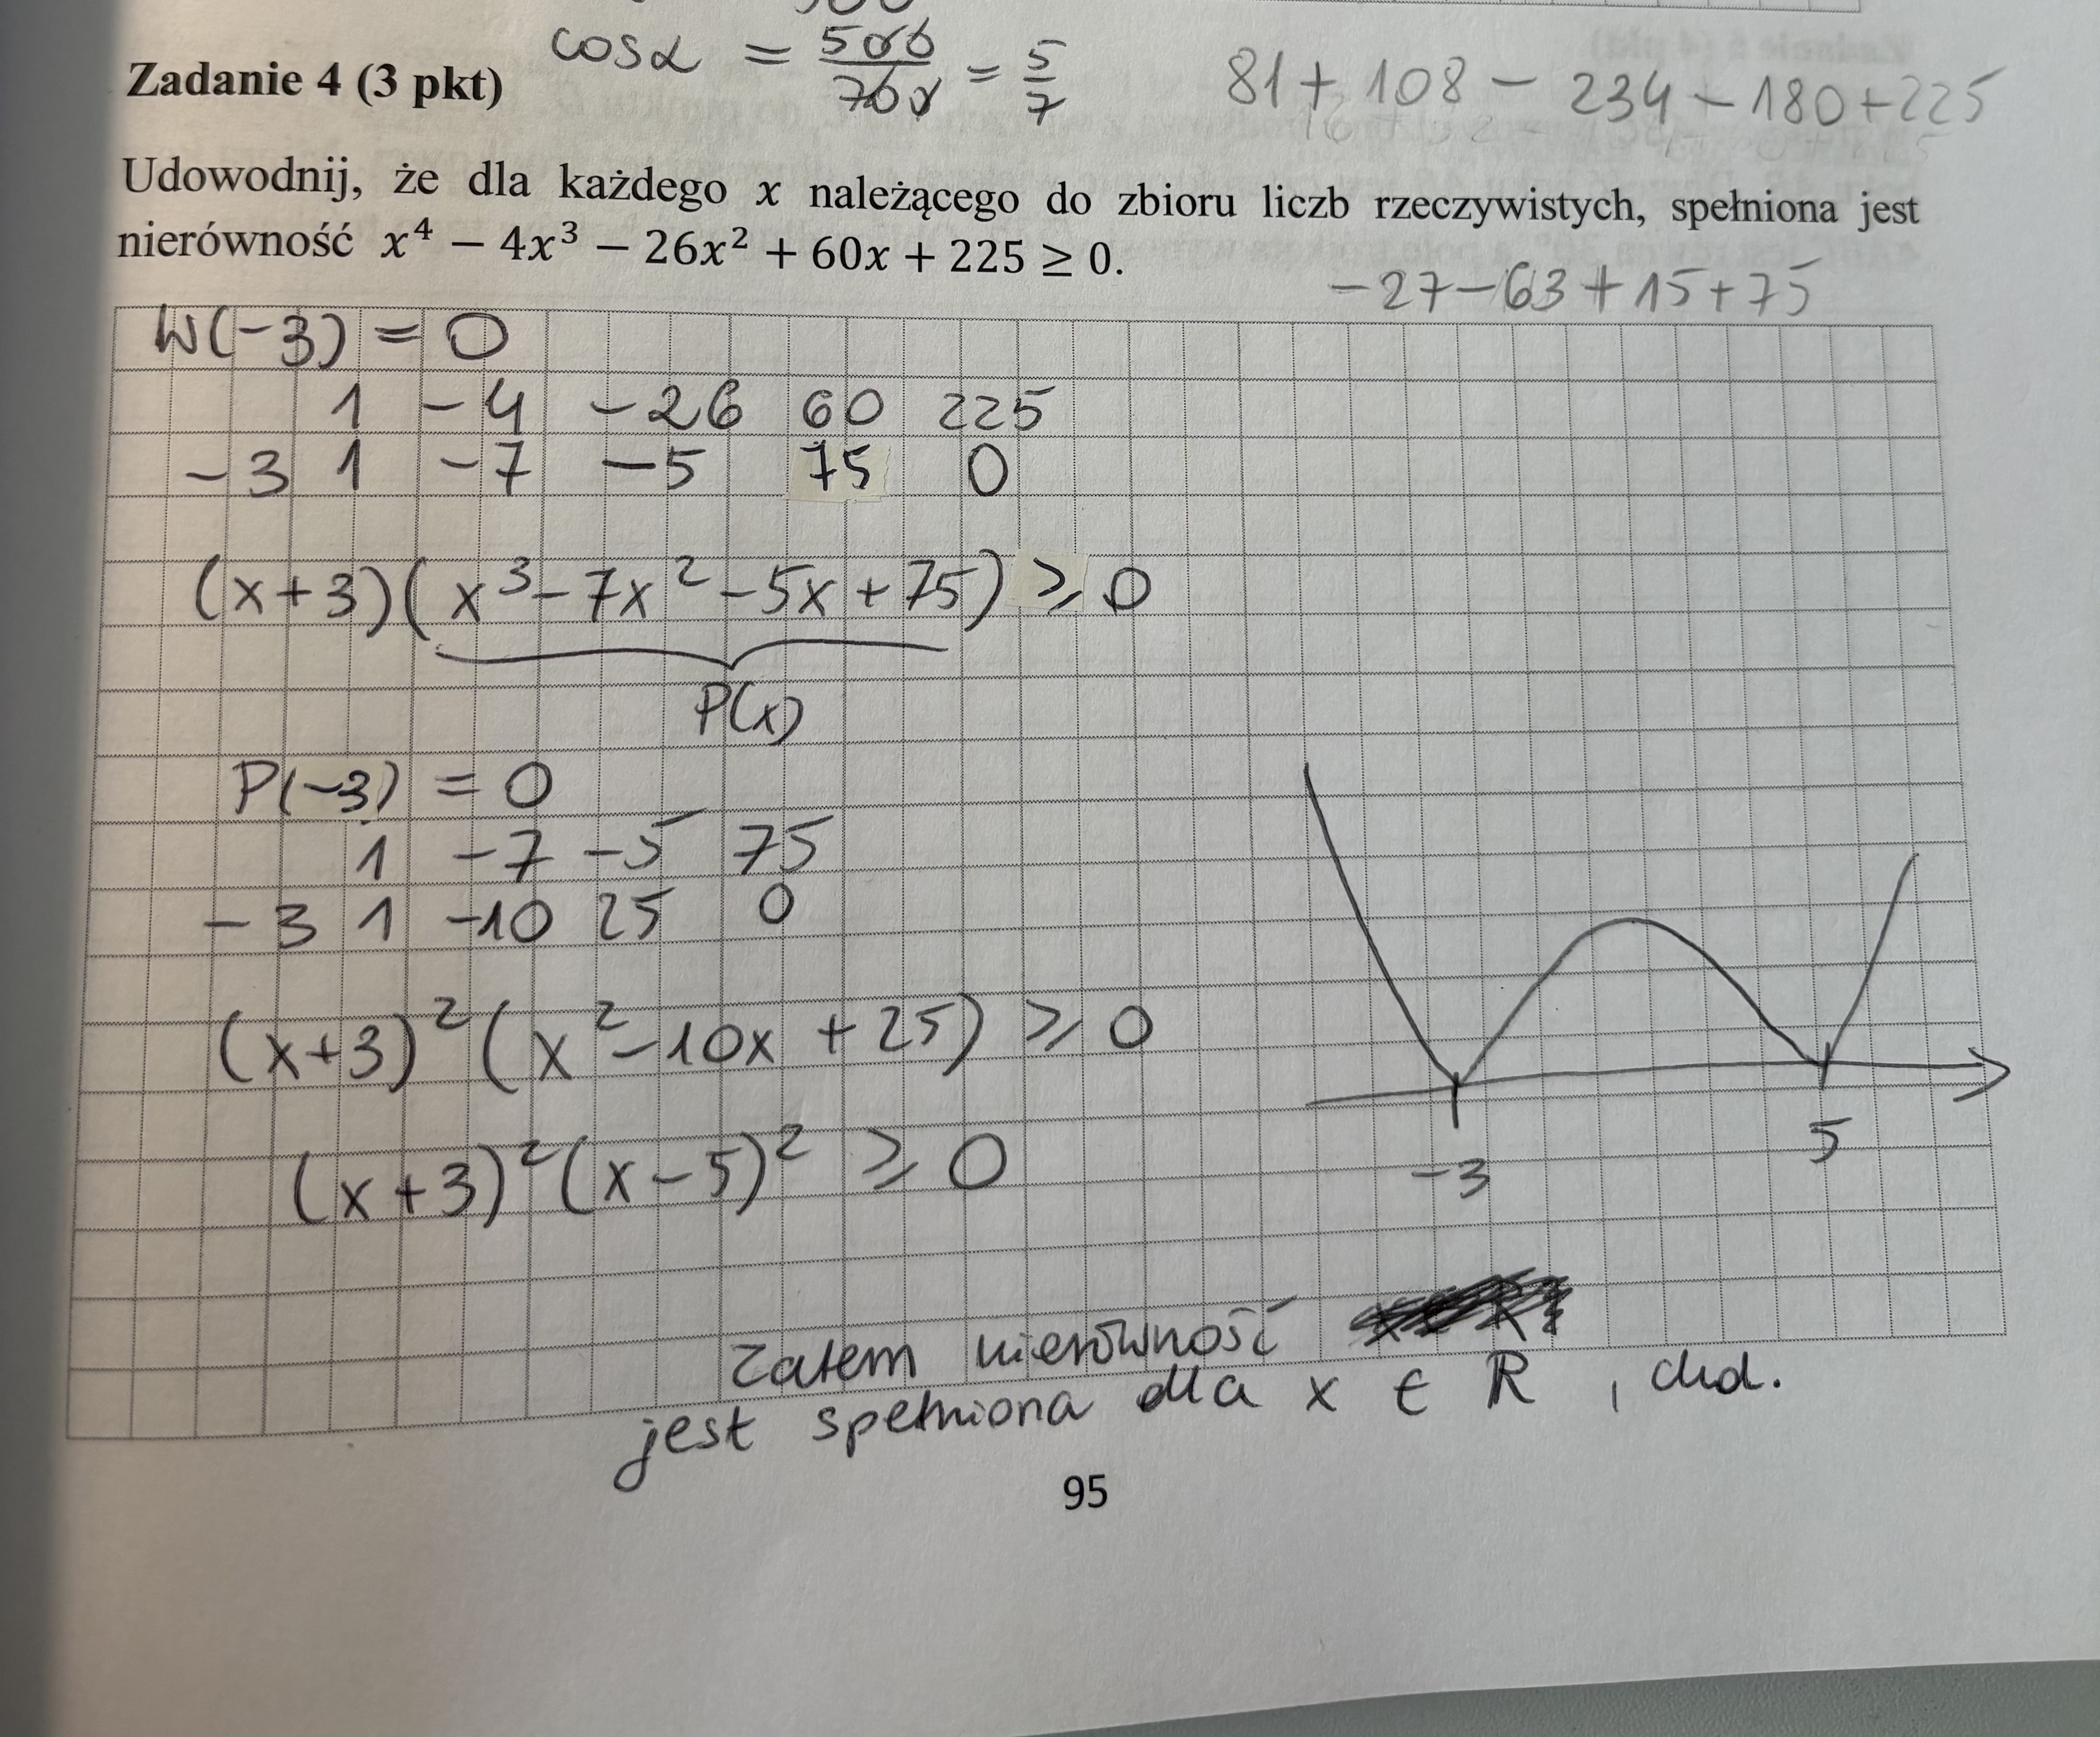 cosα = 500/700 = 5/7
Zadanie 4 (3 pkt)
81 + 108 - 234 - 180 + 225
Udowodnij, że dla każdego x należącego do zbioru liczb rzeczywistych, spełniona jest
nierówność x⁴ − 4x³ − 26x² + 60x + 225 ≥ 0.
-27-63+15+75
W(-3) = 0
1 -4 -26 60 225
-3 1 -7 -5 75 0
(x+3)(x³-7x²-5x+75) ≥ 0
P(x)
P(-3) = 0
1 -7 -5 75
-3 1 -10 25 0
(x+3)²(x²-10x+25) ≥ 0
(x+3)²(x-5)² ≥ 0
-3 5
Zatem nierówność
jest spełniona dla x ∈ R, cnd.
95